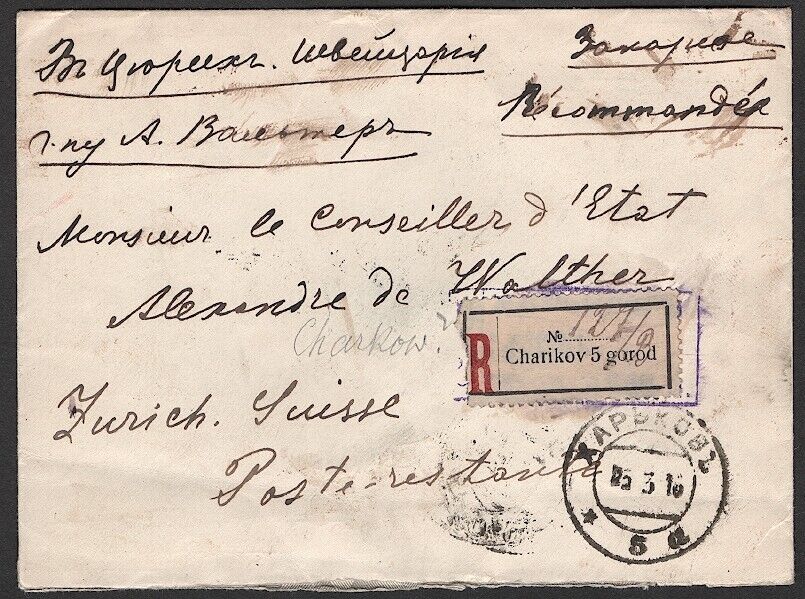 Въ Цюрихъ. Швейцарія
Заказное
Récommandée
г-ну А. Вальтеръ
Monsieur le Conseiller d'Etat
Alexandre de Walther
Charkow.
R
№ 127/B
Charikov 5 gorod
Zurich. Suisse
Poste-restante
ХАРЬКОВЪ
25 3 16
* 5 d